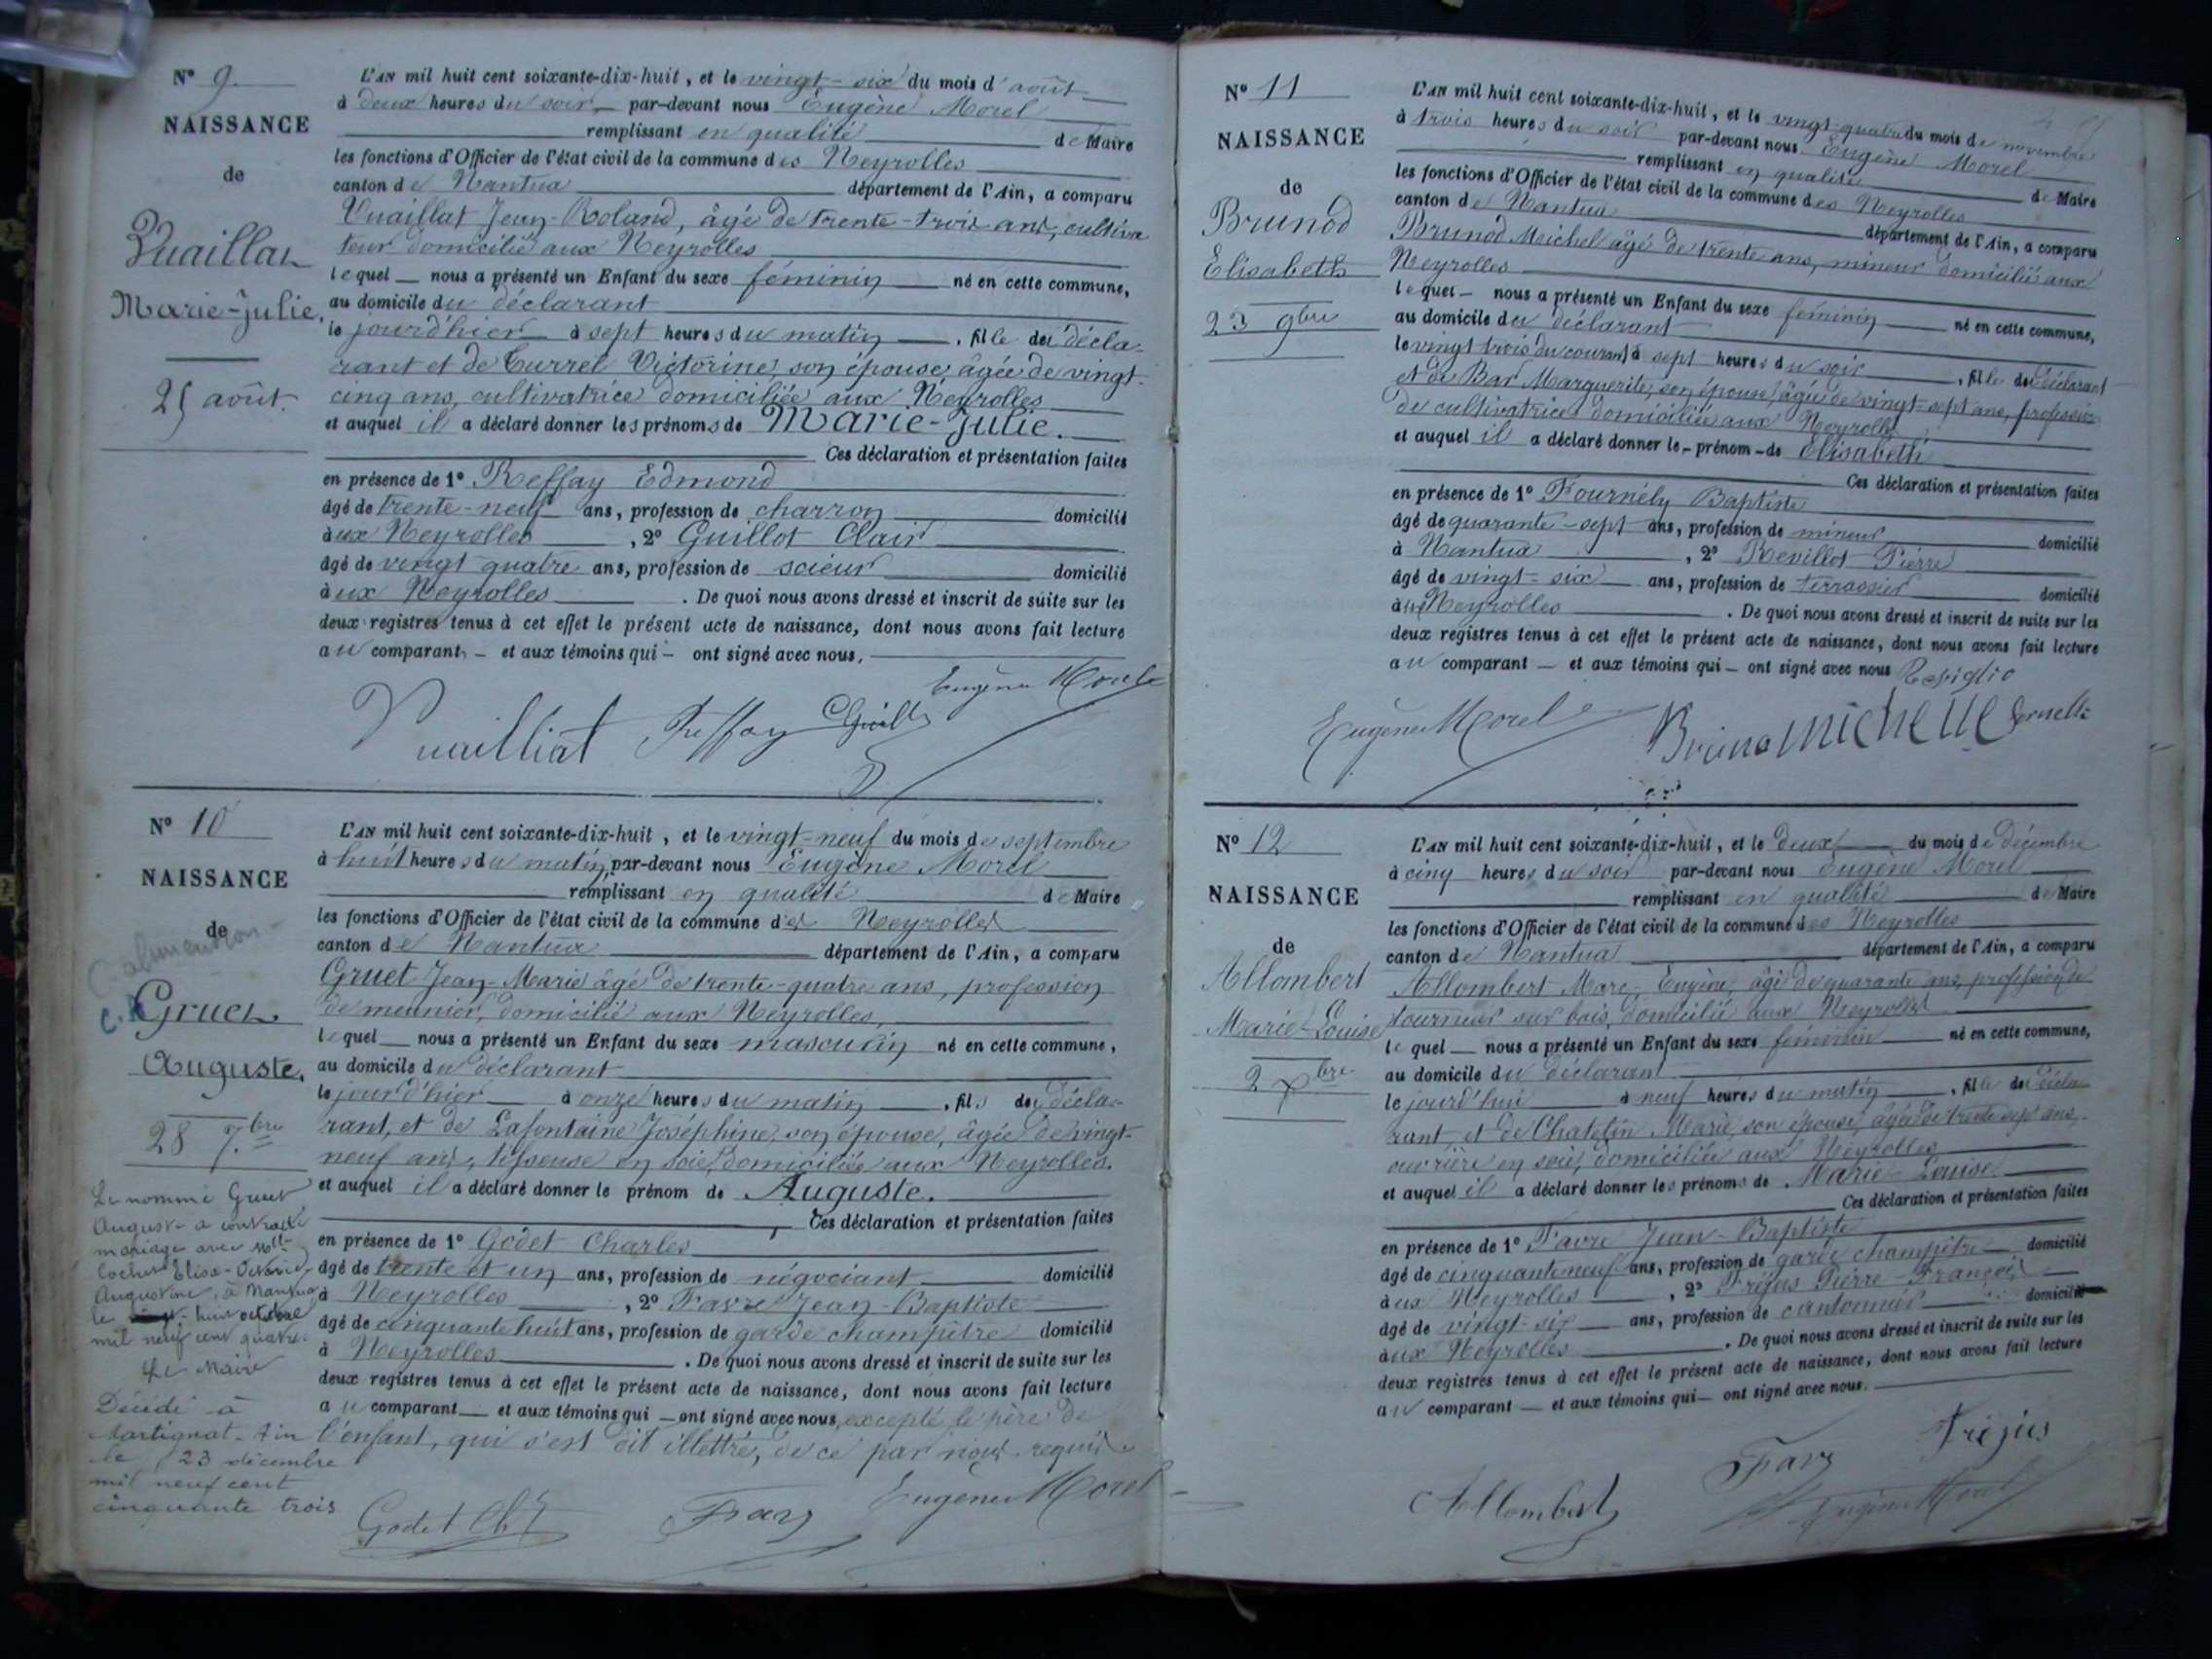 N° 9
NAISSANCE
de
Vuaillat
Marie-Julie.
25 août.
L'AN mil huit cent soixante-dix-huit, et le vingt-six du mois d'août
à deux heures du soir par-devant nous Eugène Morel
remplissant en qualité de Maire
les fonctions d'Officier de l'état civil de la commune des Neyrolles
canton de Nantua département de l'Ain, a comparu
Vuaillat Jean-Roland, âgé de trente-trois ans, cultiva
teur domicilié aux Neyrolles
lequel nous a présenté un Enfant du sexe féminin né en cette commune,
au domicile du déclarant
le jourd'hier à sept heures du matin, fille du décla-
rant et de Curret Victorine, son épouse âgée de vingt-
cinq ans, cultivatrice domiciliée aux Neyrolles
et auquel il a déclaré donner les prénoms de Marie-Julie.
Ces déclaration et présentation faites
en présence de 1° Reffay Edmond
âgé de trente-neuf ans, profession de charron domicilié
aux Neyrolles, 2° Guillot Clair
âgé de vingt quatre ans, profession de scieur domicilié
aux Neyrolles. De quoi nous avons dressé et inscrit de suite sur les
deux registres tenus à cet effet le présent acte de naissance, dont nous avons fait lecture
au comparant et aux témoins qui ont signé avec nous.
Eugène Morel
Vuailliat Reffay
N° 10
NAISSANCE
de
Gruet
Auguste.
28 7.bre
Le nommé Gruet
Auguste a contracté
mariage avec Mlle
Cochet Elisa-
Augustine, à Nantua
le huit octobre
mil neuf cent quatre.
Le Maire
Décédé à
Martignat-Ain
le 23 décembre
mil neuf cent
cinquante trois
L'AN mil huit cent soixante-dix-huit, et le vingt-neuf du mois de septembre
à huit heures du matin, par-devant nous Eugène Morel
remplissant en qualité de Maire
les fonctions d'Officier de l'état civil de la commune des Neyrolles
canton de Nantua département de l'Ain, a comparu
Gruet Jean-Marie âgé de trente-quatre ans, profession
de meunier, domicilié aux Neyrolles,
lequel nous a présenté un Enfant du sexe masculin né en cette commune,
au domicile du déclarant
le jour d'hier à onze heures du matin, fils du décla-
rant, et de Lafontaine Joséphine, son épouse, âgée de vingt-
neuf ans, tisseuse en soie, domiciliée aux Neyrolles.
et auquel il a déclaré donner le prénom de Auguste.
Ces déclaration et présentation faites
en présence de 1° Godet Charles
âgé de trente et un ans, profession de négociant domicilié
à Neyrolles, 2° Favre Jean-Baptiste
âgé de cinquante huit ans, profession de garde champêtre domicilié
à Neyrolles. De quoi nous avons dressé et inscrit de suite sur les
deux registres tenus à cet effet le présent acte de naissance, dont nous avons fait lecture
au comparant et aux témoins qui ont signé avec nous, excepté le père de
l'enfant, qui s'est dit illettré, de ce par nous requis.
Eugène Morel
Godet Ch
N° 11
NAISSANCE
de
Brunod
Elisabeth
23 9bre
L'AN mil huit cent soixante-dix-huit, et le vingt-quatre du mois de novembre
à trois heures du soir par-devant nous Eugène Morel
remplissant en qualité de Maire
les fonctions d'Officier de l'état civil de la commune des Neyrolles
canton de Nantua département de l'Ain, a comparu
Brunod Michel âgé de trente ans, mineur domicilié aux
Neyrolles
lequel nous a présenté un Enfant du sexe féminin né en cette commune,
au domicile du déclarant
le vingt trois du courant à sept heures du soir, fille du déclarant
et de Bar Marguerite, son épouse, âgée de vingt-sept ans, profession
de cultivatrice domiciliée aux Neyrolles
et auquel il a déclaré donner le prénom de Elisabeth
Ces déclaration et présentation faites
en présence de 1° Fournély Baptiste
âgé de quarante-sept ans, profession de mineur domicilié
à Nantua, 2° Revillot Pierre
âgé de vingt-six ans, profession de terrassier domicilié
aux Neyrolles. De quoi nous avons dressé et inscrit de suite sur les
deux registres tenus à cet effet le présent acte de naissance, dont nous avons fait lecture
au comparant et aux témoins qui ont signé avec nous
Eugène Morel
N° 12
NAISSANCE
de
Allombert
Marie-Louise
2 Xbre
L'AN mil huit cent soixante-dix-huit, et le deux du mois de décembre
à cinq heures du soir par-devant nous Eugène Morel
remplissant en qualité de Maire
les fonctions d'Officier de l'état civil de la commune des Neyrolles
canton de Nantua département de l'Ain, a comparu
Allombert Marc-Eugène, âgé de quarante ans, profession de
tourneur sur bois, domicilié aux Neyrolles
lequel nous a présenté un Enfant du sexe féminin né en cette commune,
au domicile du déclarant
le jourd'hui à neuf heures du matin, fille du décla
rant, et de Chatelin Marie, son épouse, âgée de trente sept ans,
ouvrière en soie, domiciliée aux Neyrolles
et auquel il a déclaré donner les prénoms de Marie-Louise.
Ces déclaration et présentation faites
en présence de 1° Favre Jean-Baptiste
âgé de cinquante neuf ans, profession de garde champêtre domicilié
aux Neyrolles, 2° Fréjus Pierre-François
âgé de vingt-six ans, profession de cantonnier domicilié
aux Neyrolles. De quoi nous avons dressé et inscrit de suite sur les
deux registres tenus à cet effet le présent acte de naissance, dont nous avons fait lecture
au comparant et aux témoins qui ont signé avec nous.
Fréjus
Allombert
Eugène Morel